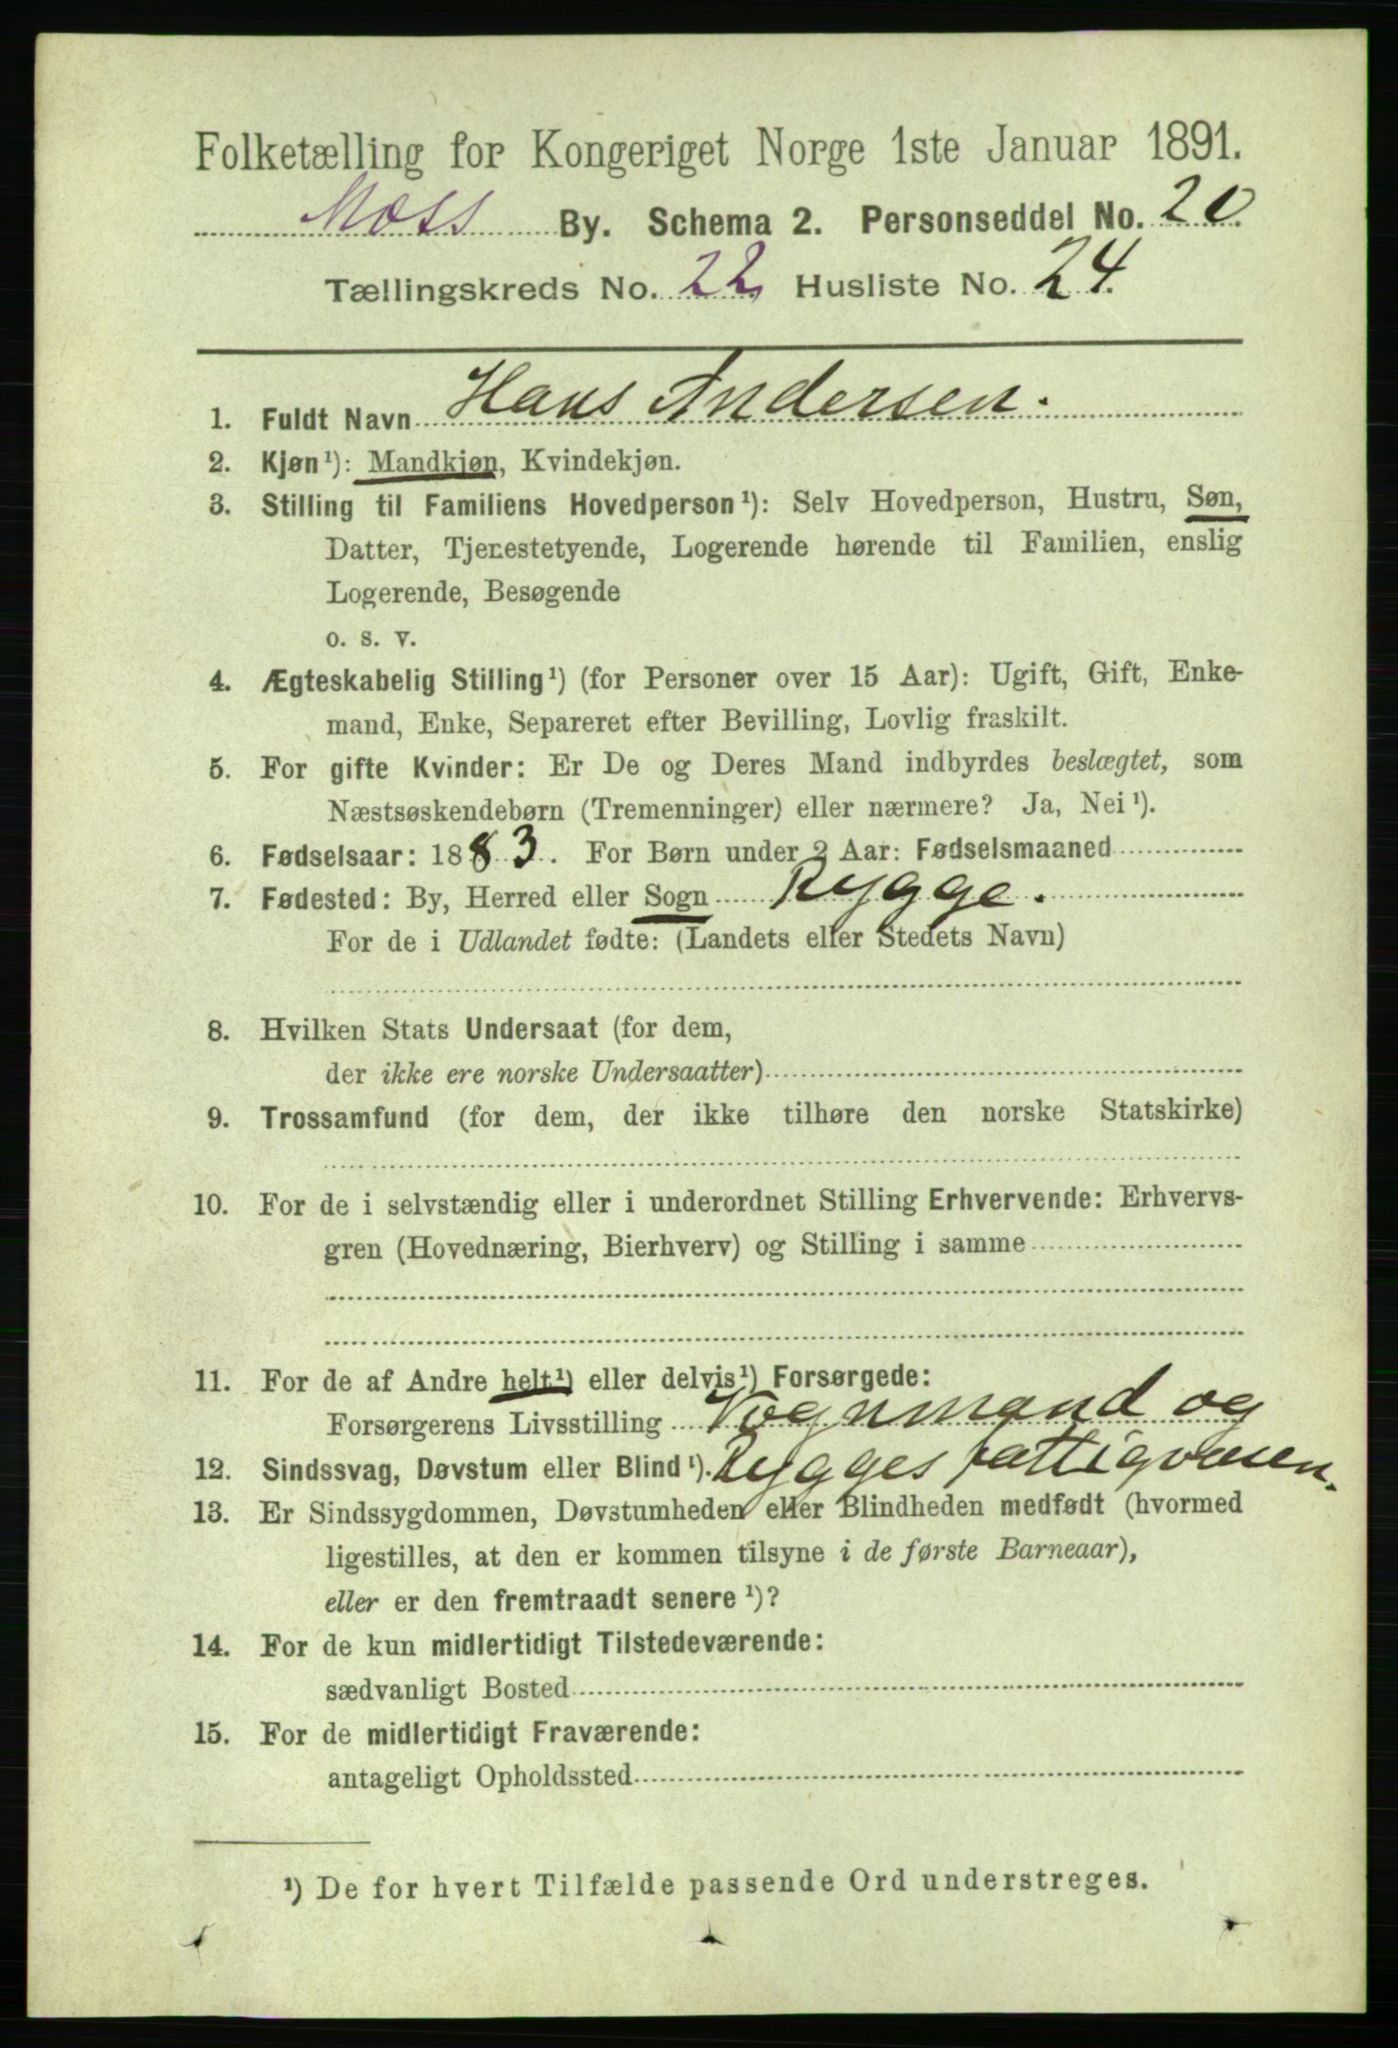 Folketælling for Kongeriget Norge 1ste Januar 1891.
Moss By. Schema 2. Personseddel No. 20.
Tællingskreds No. 22, Husliste No. 24.
1. Fuldt Navn Hans Andersen.
2. Kjøn¹): Mandkjøn, Kvindekjøn.
3. Stilling til Familiens Hovedperson¹): Selv Hovedperson, Hustru, Søn,
Datter, Tjenestetyende, Logerende hørende til Familien, enslig
Logerende, Besøgende
o. s. v.
4. Ægteskabelig Stilling¹) (for Personer over 15 Aar): Ugift, Gift, Enke-
mand, Enke, Separeret efter Bevilling, Lovlig fraskilt.
5. For gifte Kvinder: Er De og Deres Mand indbyrdes beslægtet, som
Næstsøskendebørn (Tremenninger) eller nærmere? Ja, Nei¹).
6. Fødselsaar: 1883. For Børn under 2 Aar: Fødselsmaaned
7. Fødested: By, Herred eller Sogn Rygge.
For de i Udlandet fødte: (Landets eller Stedets Navn)
8. Hvilken Stats Undersaat (for dem,
der ikke ere norske Undersaatter)
9. Trossamfund (for dem, der ikke tilhøre den norske Statskirke)
10. For de i selvstændig eller i underordnet Stilling Erhvervende: Erhvervs-
gren (Hovednæring, Bierhverv) og Stilling i samme
11. For de af Andre helt¹) eller delvis¹) Forsørgede:
Forsørgerens Livsstilling Vognmand og
12. Sindssvag, Døvstum eller Blind¹). Rygges fattigvæsen.
13. Er Sindssygdommen, Døvstumheden eller Blindheden medfødt (hvormed
ligestilles, at den er kommen tilsyne i de første Barneaar),
eller er den fremtraadt senere¹)?
14. For de kun midlertidigt Tilstedeværende:
sædvanligt Bosted
15. For de midlertidigt Fraværende:
antageligt Opholdssted
¹) De for hvert Tilfælde passende Ord understreges.